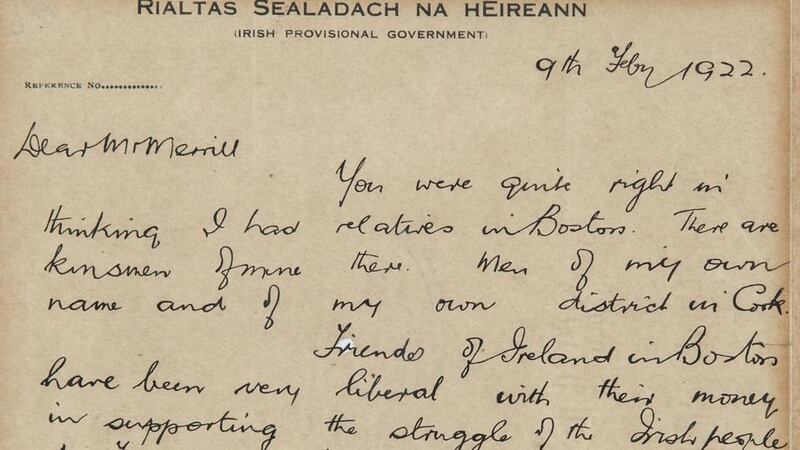 RIALTAS SEALADACH NA hEIREANN
(IRISH PROVISIONAL GOVERNMENT)
9th Feby 1922.
REFERENCE No..............
Dear Mr Merrill
You were quite right in
thinking I had relatives in Boston. There are
kinsmen of mine there. Men of my own
name and of my own district in Cork.
Friends of Ireland in Boston
have been very liberal with their money
in supporting the struggle of the Irish people